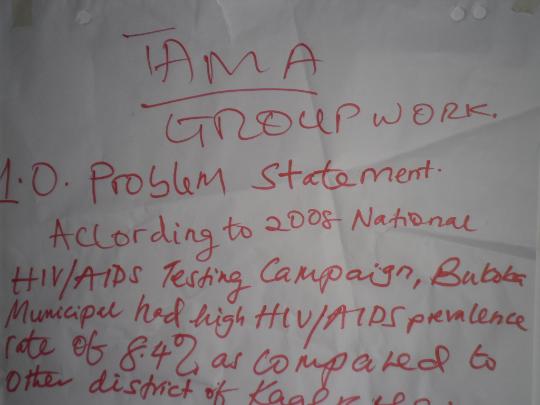 TAMA
GROUP WORK.
1.0. Problem Statement.
According to 2008 National
HIV/AIDS Testing Campaign, Bukoba
Municipal had high HIV/AIDS prevalence
rate of 8.4% as compared to
Other district of